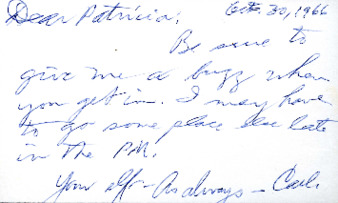 Dear Patricia: Oct. 30, 1966
Be sure to
give me a buzz when
you get in. I may have
to go some place else late
in the PM.
Your – As always – Carl.